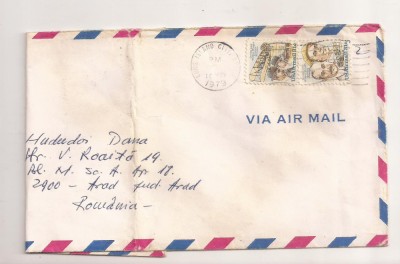 PM
1979
VIA AIR MAIL
Hududoi Dana
Str. V. Roaită 19.
Bl. M. Sc. A. Ap. 18.
2900 - Arad jud. Arad
România -